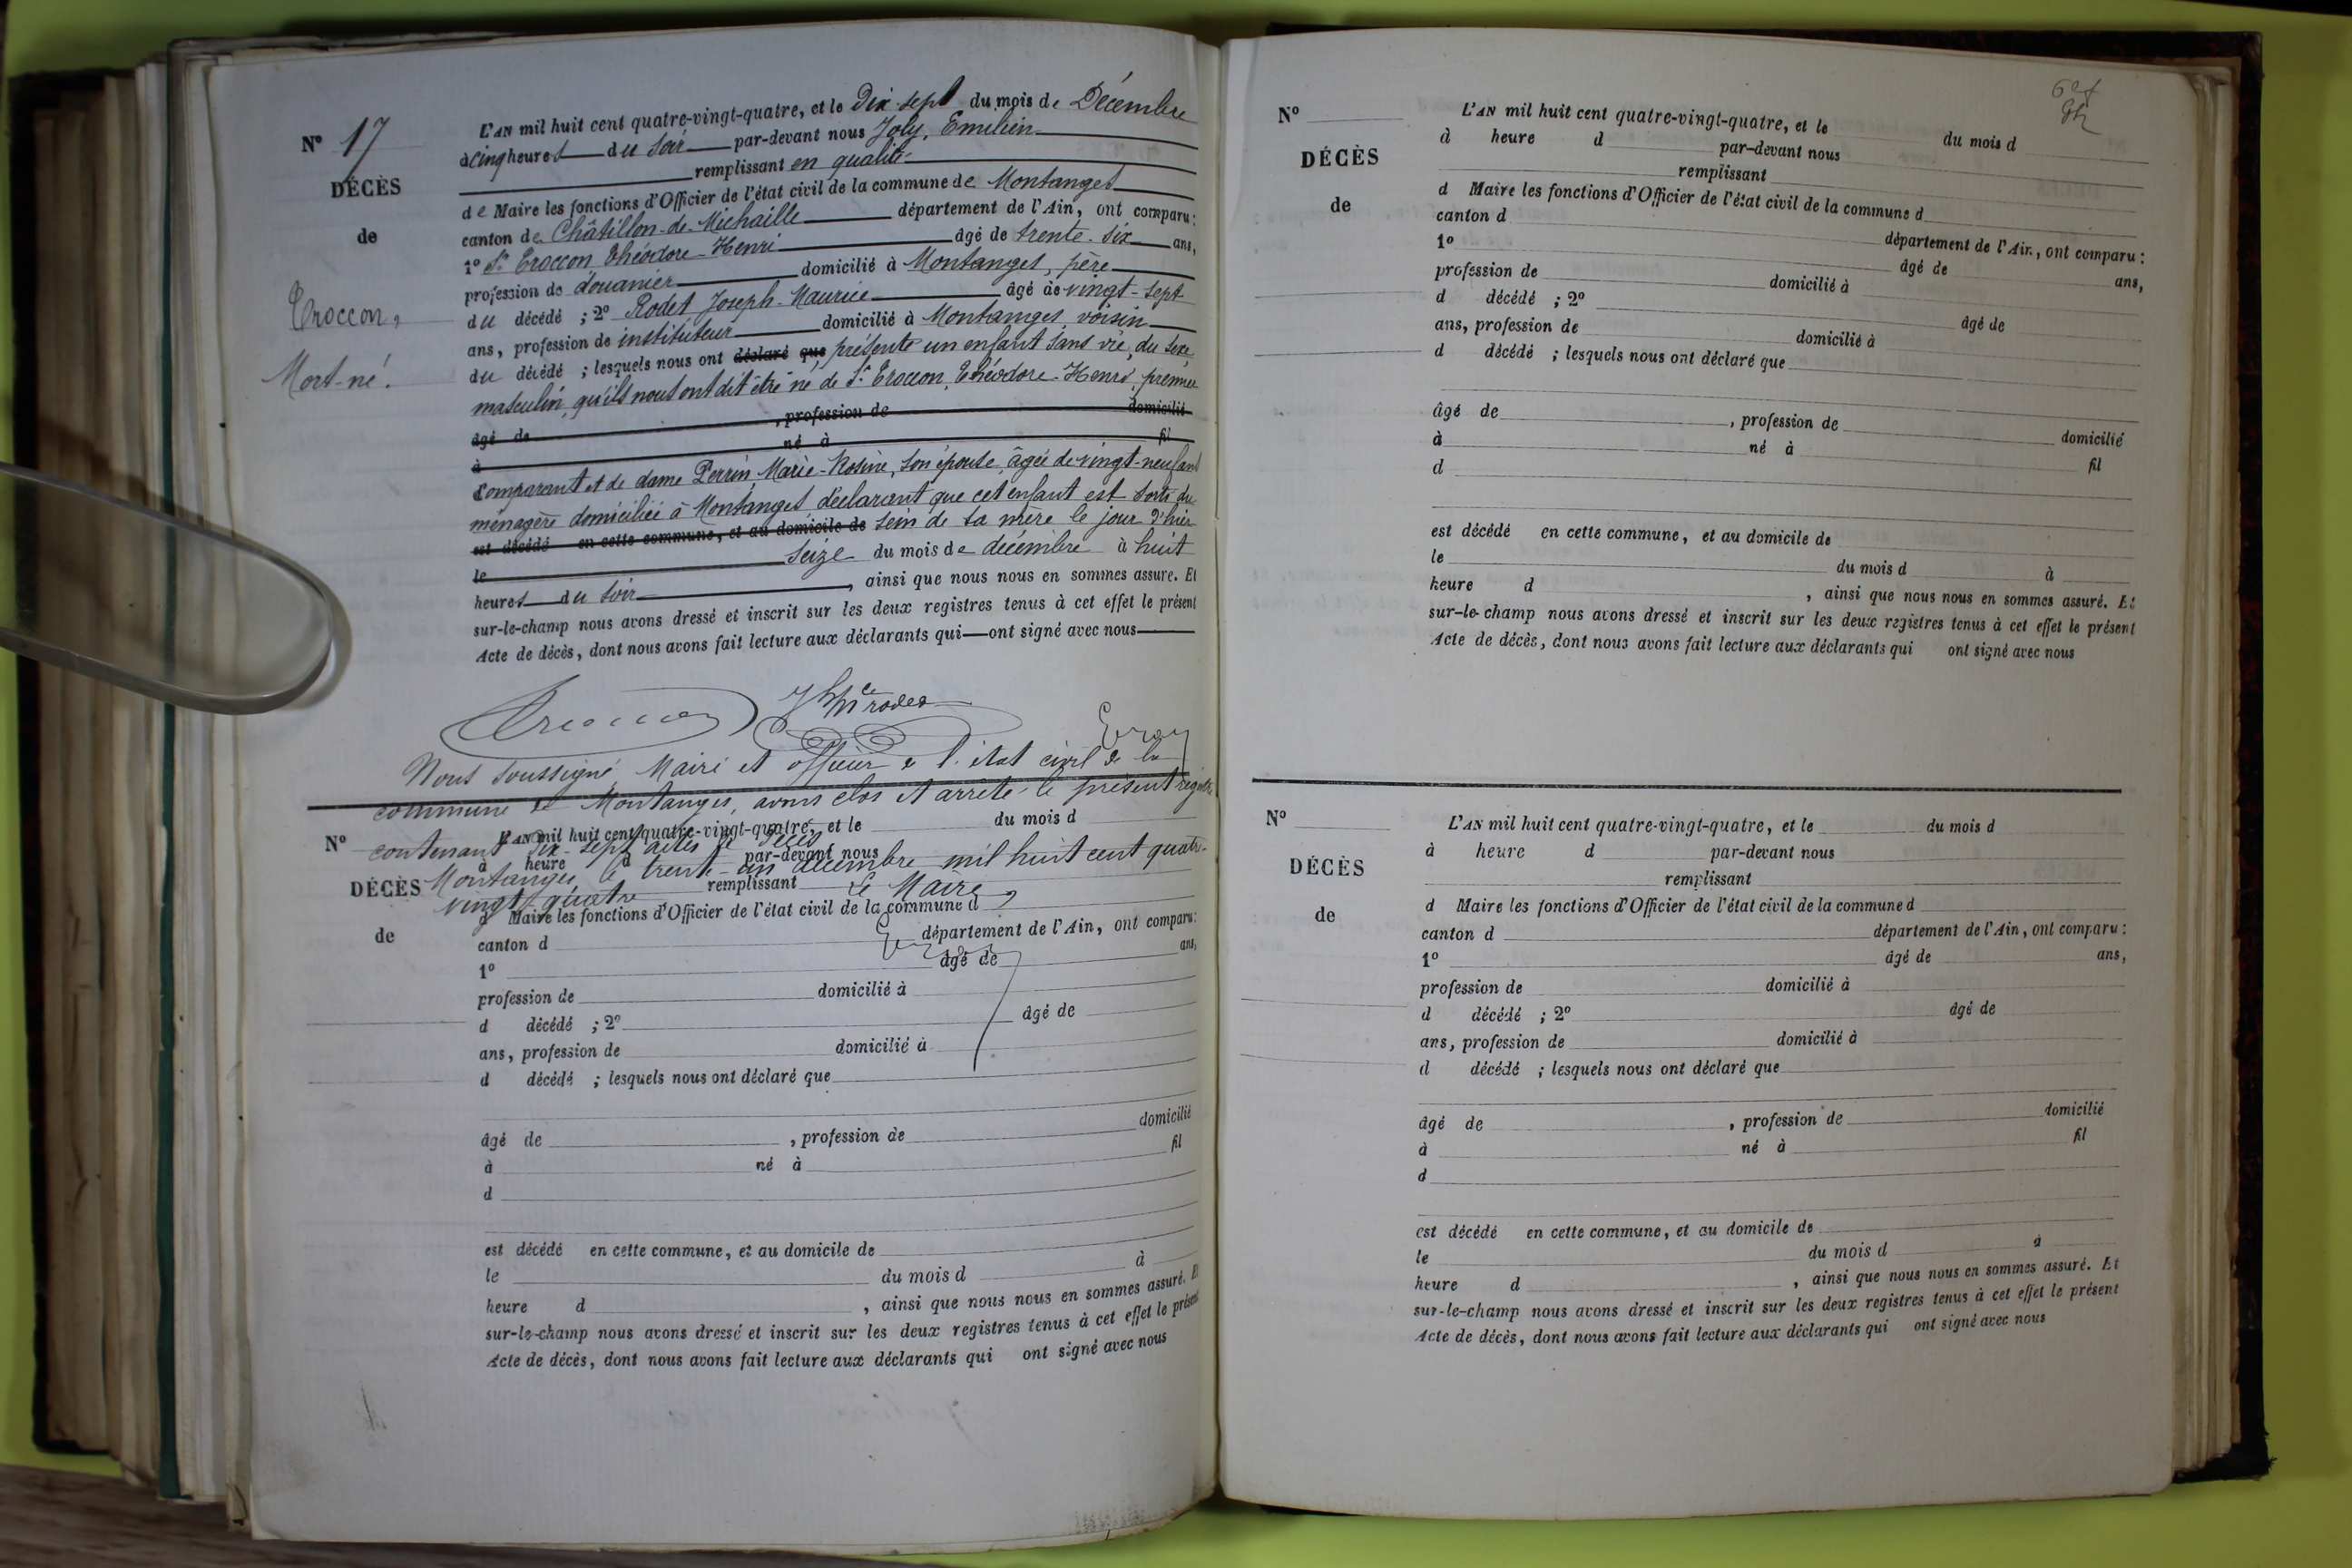 N° 17
DÉCÈS
de
Troccon,
Mort-né.
L'AN mil huit cent quatre-vingt-quatre, et le Dix-sept du mois de Décembre
à cinq heures du soir par-devant nous Joly, Emilien
remplissant en qualité
de Maire les fonctions d'Officier de l'état civil de la commune de Montanges
canton de Châtillon-de-Michaille département de l'Ain, ont comparu:
1° Sr Troccon Théodore-Henri âgé de trente-six ans,
profession de douanier domicilié à Montanges, père
du décédé ; 2° Rodet Joseph-Maurice âgé de vingt-sept
ans, profession de instituteur domicilié à Montanges, voisin
du décédé ; lesquels nous ont déclaré que présenté un enfant sans vie, du sexe
masculin, qu'ils nous ont dit être né de Sr Troccon, Théodore-Henri, premier
âgé de , profession de domicilié
à né à fil
comparant et de dame Perrin, Marie-Rosine, son épouse, âgée de vingt-neuf ans
ménagère domiciliée à Montanges, déclarant que cet enfant est sorti du
est décédé en cette commune, et au domicile de sein de sa mère le jour d'hier
le seize du mois de décembre à huit
heures du soir , ainsi que nous nous en sommes assuré. Et
sur-le-champ nous avons dressé et inscrit sur les deux registres tenus à cet effet le présent
Acte de décès, dont nous avons fait lecture aux déclarants qui ont signé avec nous
Nous soussigné, Maire et officier de l'état civil de la
commune de Montanges, avons clos et arrêté le présent registre
contenant dix-sept actes de décès
Montanges, le trente-un décembre mil huit cent quatre-
vingt-quatre
Le Maire,
N°
DÉCÈS
de
L'AN mil huit cent quatre-vingt-quatre, et le du mois d
à heure d par-devant nous
remplissant
d Maire les fonctions d'Officier de l'état civil de la commune d
canton d département de l'Ain, ont comparu:
1° âgé de ans,
profession de domicilié à
d décédé ; 2° âgé de
ans, profession de domicilié à
d décédé ; lesquels nous ont déclaré que
âgé de , profession de domicilié
à né à fil
d
est décédé en cette commune, et au domicile de
le du mois d à
heure d , ainsi que nous nous en sommes assuré. Et
sur-le-champ nous avons dressé et inscrit sur les deux registres tenus à cet effet le présent
Acte de décès, dont nous avons fait lecture aux déclarants qui ont signé avec nous
N°
DÉCÈS
de
L'AN mil huit cent quatre-vingt-quatre, et le du mois d
à heure d par-devant nous
remplissant
d Maire les fonctions d'Officier de l'état civil de la commune d
canton d département de l'Ain, ont comparu :
1° âgé de ans,
profession de domicilié à
d décédé ; 2° âgé de
ans, profession de domicilié à
d décédé ; lesquels nous ont déclaré que
âgé de , profession de domicilié
à né à fil
d
est décédé en cette commune, et au domicile de
le du mois d à
heure d , ainsi que nous nous en sommes assuré. Et
sur-le-champ nous avons dressé et inscrit sur les deux registres tenus à cet effet le présent
Acte de décès, dont nous avons fait lecture aux déclarants qui ont signé avec nous
N°
DÉCÈS
de
L'AN mil huit cent quatre-vingt-quatre, et le du mois d
à heure d par-devant nous
remplissant
d Maire les fonctions d'Officier de l'état civil de la commune d
canton d département de l'Ain, ont comparu :
1° âgé de ans,
profession de domicilié à
d décédé ; 2° âgé de
ans, profession de domicilié à
d décédé ; lesquels nous ont déclaré que
âgé de , profession de domicilié
à né à fil
d
est décédé en cette commune, et au domicile de
le du mois d à
heure d , ainsi que nous nous en sommes assuré. Et
sur-le-champ nous avons dressé et inscrit sur les deux registres tenus à cet effet le présent
Acte de décès, dont nous avons fait lecture aux déclarants qui ont signé avec nous